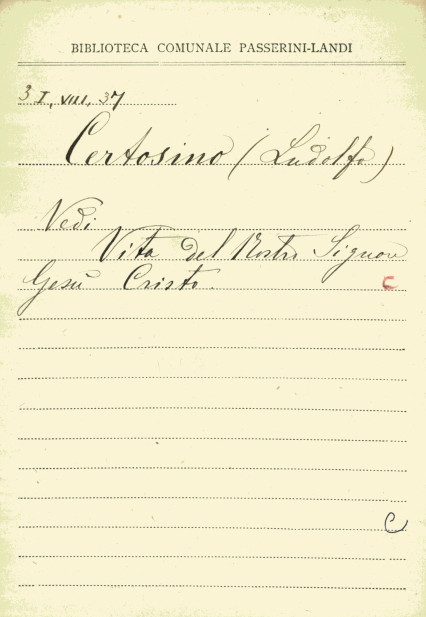 BIBLIOTECA COMUNALE PASSERINI-LANDI
3 I, VIII, 37
Certosino (Ludolfo)
Vedi
Vita del Nostro Signore
Gesù Cristo.
C
C